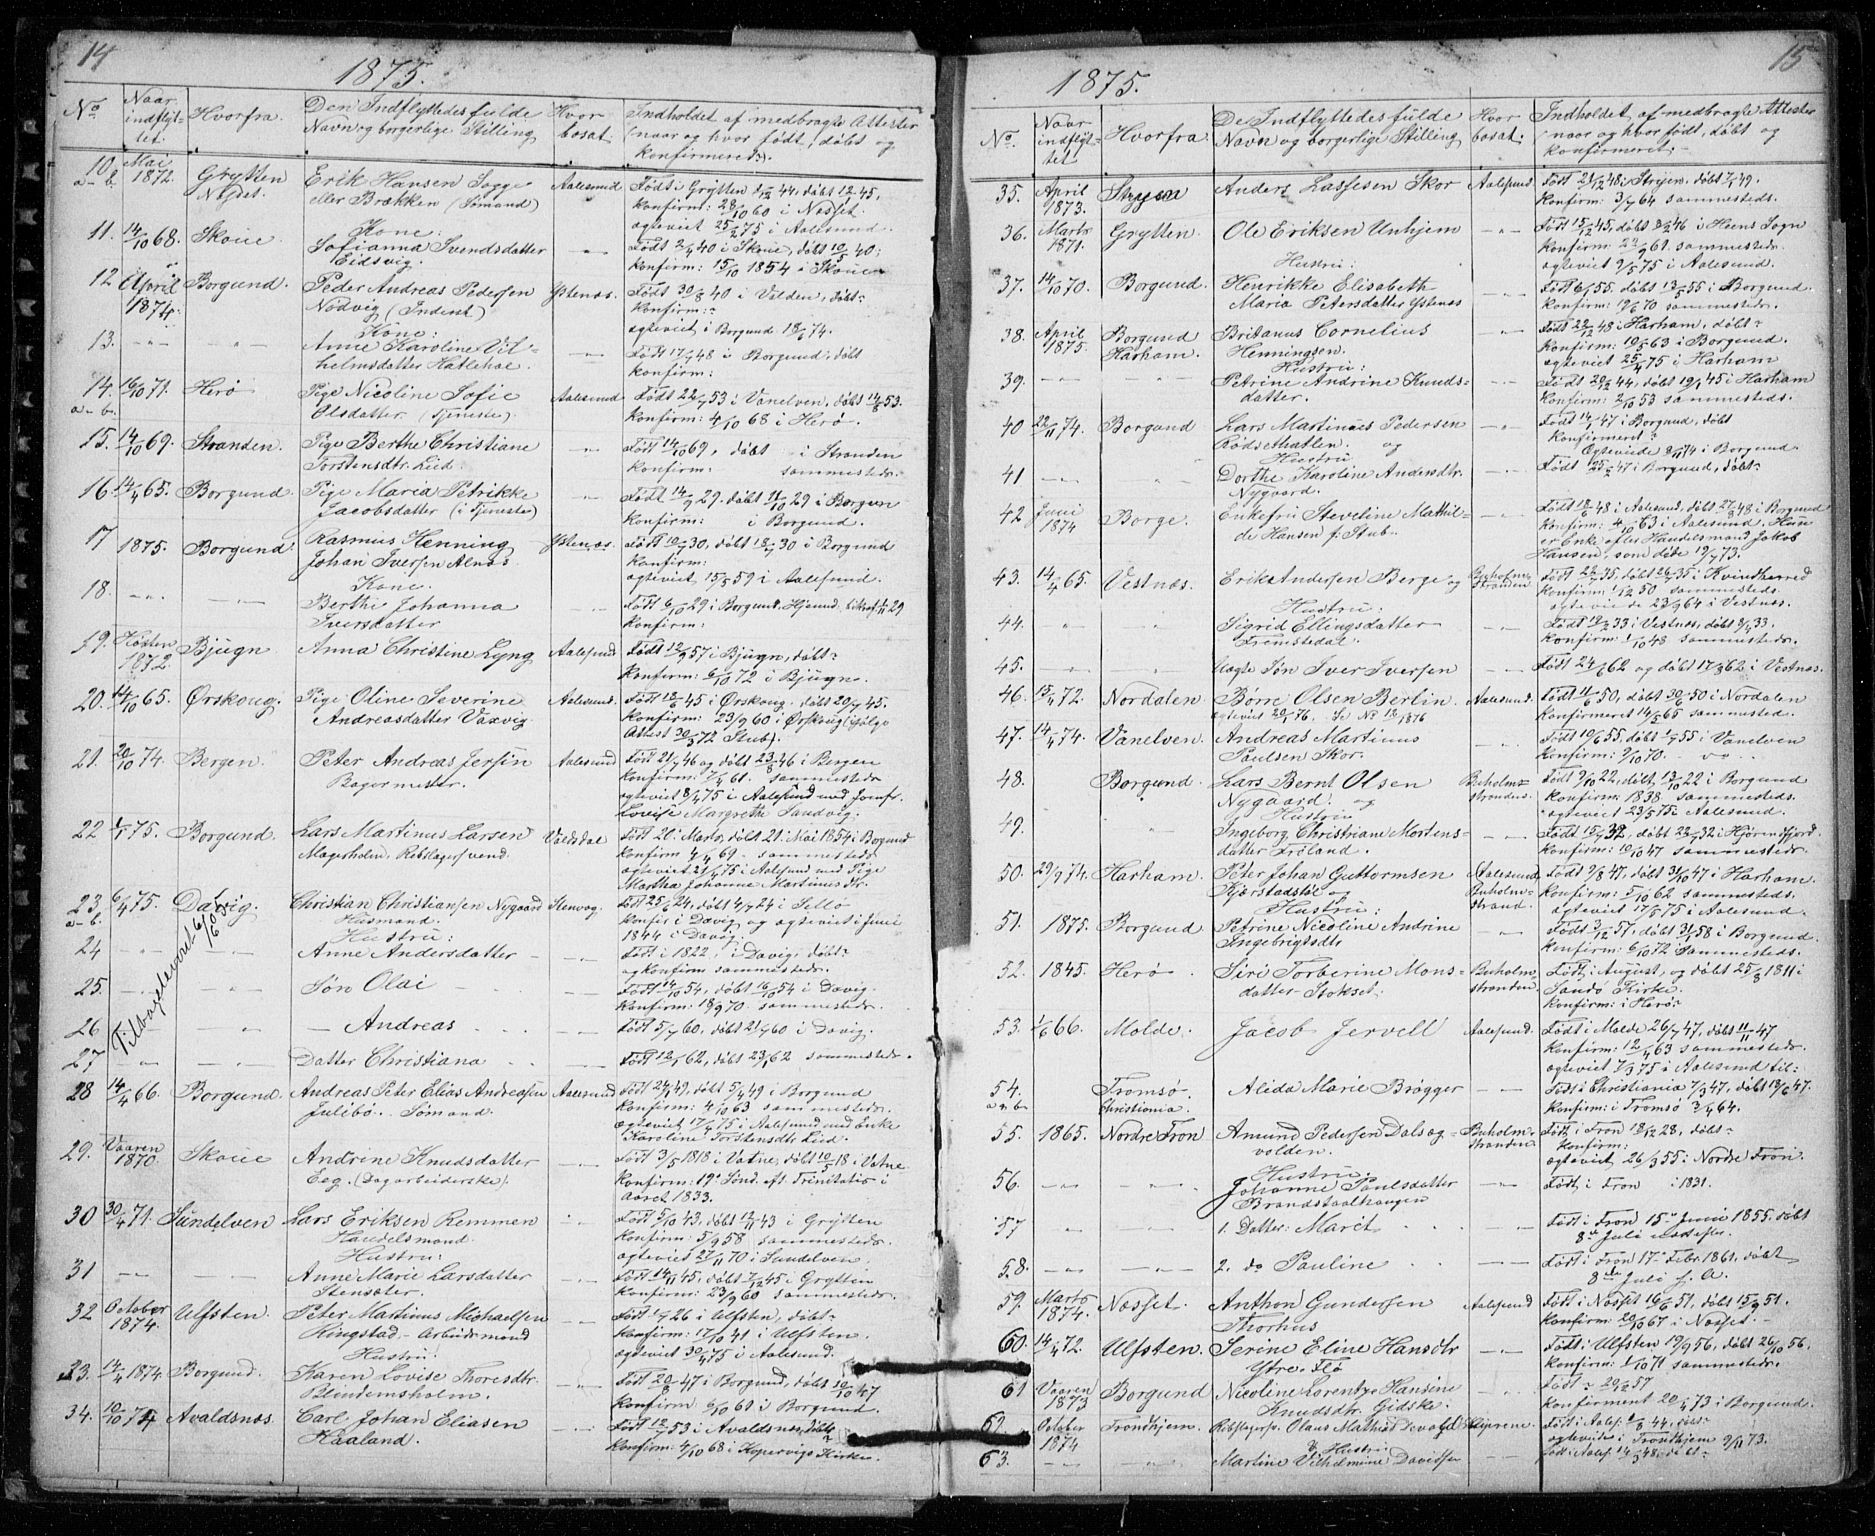 14
1875.
No
Naar indflyt-tet.
Hvorfra.
Den Indflyttedes fulde Navn og borgerlige Stilling
Hvor bosat.
Indholdet af medbragte Attester (naar og hvor født, døbt og konfirmeret).
10 a-b. Mai 1872. Grytten Nesset. Erik Hansen Sogge Aalesund Født i Grytten 44. døbt 12.45,
eller Brækken (Sømand) konfirm: 28/10 60 i Nesset.
Kone: egteviet 25/2 75 i Aalesund.
11. 14/10 68. Skoue Sofianna Svendsdatter Født 2/4 40 i Skoue, døbt 10/5 40;
Eidsvig. konfirm: 15/10 1854 i Skoue
12 April 1874. Borgund. Peder Andreas Pedersen Ystenæs. Født 30/8 40 i Volden, døbt-
Nødvig (Inderst) konfirm:-
Kone: egteviet i Borgund 74.
13. Anne Karoline Vil- Født 17/7 48 i Borgund, døbt
helmsdatter Hatlehoe. konfirm:
14. a-b. 16/10 71. Herø Pige Nicoline Sofie Aalesund Født 22/7 53 i Vanelven, døbt 14/8 53.
Olsdatter (Tjeneste) konfirm: 4/10 68 i Herø.
15. 14/10 69. Stranden Pige Berthe Christiane Født 14/10 69, døbt i Stranden
Torstensdtr. Lied. konfirm: sammesteds.
16. 14/4 65. Borgund. Pige Maria Petrikke Født 14/9 29. døbt 11/10 29 i Borgun
Jacobsdatter (i Tjeneste) konfirm: i Borgund.
17 1875. Borgund. Rasmus Henning Ystenæs. Født 10/7 30, døbt 18/7 30 i Borgund
Johan Iversen Alnæs. konfirm:
Kone. egteviet, 15/5 59 i Aalesund.
18. Berthe Johanna Født 6/10 29 i Borgund,
Iversdatter konfirm:
19. Høsten 1872. Bjugn Anna Christine Lyng Aalesund Født 12/9 57 i Bjugn, døbt-
konfirm: 6/10 72 i Bjugn.
20. 14/10 65. Ørskoug. Pige Oline Severine Aalesund. Født 18/6 45 i Ørskoug. døbt 29/7 45.
Andreasdatter Vaxvig. konfirm: 23/9 60 i Ørskoug (ifølge
Attest 30/3 72 Stub).
21. 20/10 74. Bergen. Peter Andreas Jersin Aalesund Født 21/7 46 og døbt 23/8 46 i Bergen
Bagermester. konfirm: 7/4 61. sammesteds
egteviet 8/4 75 i Aalesund med Jomfr.
Lovise Margrethe Sandvig.
22 1/1 75. Borgund. Lars Martinus Larsen Volsdal Født 20. Marts, døbt 21. Mai 1854 i Borgund
Magerholm, Rebslagersvend. konfirm 4/4 69. sammesteds
egteviet 21/1 75 i Aalesund med Pige
Martha Johanne Martinusdtr.
23. a-b. 6/4 75. Davig. Christian Christiansen Nygaard Stenvog. født 25/6 24. døbt 4/7 24 i Sellø
Husmand. konfir i Davig, og egteviet i Juni
Hustru: 1844 i Davig.
Tilbagelevert 6/10
24 Anne Andersdatter Født i 1822, i Davig, døbt-
og konfirm sammesteds.
25. Søn Olai Født 14/10 54, døbt 16/10 54 i Davig.
konfirm: 18/9 70 sammesteds.
26 Andreas Født 5/7 60, døbt 21/7 60 i Davig.
27 Datter Christiana Født 12/1 62, døbt 23/1 62 sammesteds.
28 14/4 66. Borgund. Andreas Peter Elias Andreasen Aalesund Født 24/3 49, døbt 5/4 49 i Borgund
Julibø. Sømand. konfirm: 4/10 63 sammesteds.
egteviet 17/4 75 i Aalesund med Enke
Karoline Torstensdtr Lied.
29. Vaaren 1870. Skoue Andrine Knudsdatter Født 3/5 1818 i Vatne, døbt 10/5 18 i Vatne
Eeg. (Dagarbeiderske). konfirm: 19de Sønd. eft. Trinitatis i
Aaret 1833.
30 30/4 71. Sundelven Lars Eriksen Remmen Født 5/10 43, døbt 12/11 43 i Grytten
Handelsmand. konfirm: 5/9 58 sammesteds.
Hustru: egteviet 27/11 70 i Sundelven.
31 Anne Marie Larsdatter Født 14/11 45, døbt 7/12 45 i Grytten
Stensæter. konfirm: 23/9 60 sammesteds.
32 October 1874. Ulfsten. Peter Martinus Michaelsen Født 26 i Ulfsten, døbt-
Ringstad - Arbeidsmand konfirm: 17/10 41 i Ulfsten.
Hustru: egteviet 30/4 75 i Aalesund.
33. 14/4 1874. Borgund. Karen Lovise Thoresdtr. Født 20/8 47 i Borgund, døbt 10/10 47
Blindemsholm. konfirm: 6/10 61 i Borgund.
34. 10/10 74 Avaldsnæs. Carl Johan Eliasen Født 12/6 53 i Avaldsnæs, døbt-
Haaland. konfirm: 4/10 68 i Kopervigs Kirke.
15
1875.
No.
Naar indflyt-tet
Hvorfra.
De Indflyttedes fulde Navn og borgerlige Stilling
Hvor bosat.
Indholdet af medbragte Attester (naar og hvor født, døbt og konfirmeret.-
35. April 1873. Stryen Anders Lassesen Skor Aalesund Født 21/12 48 i Strijen. døbt 7/1 49.
konfirm: 3/7 64 sammesteds.
36. Marts 1871. Grytten. Ole Eriksen Unhjem Født 15/12 45, døbt 46 i Heens Sogn
konfirm: 61. sammesteds.
Hustru: egteviet 9/5 75 i Aalesund.
37. 14/10 70. Borgund. Henrikke Elisabeth Født 6/5 55. døbt 13/5 55 i Borgund.
Maria Petersdatter Ystenæs konfirm: 70 sammesteds.
38. April 1875. Borgund Harham. Britanus Cornelius Født 22/12 48 i Harham, døbt-
Henningsen. konfirm: 63 i Borgund.
Hustru: egteviet 25/4 75 i Harham
39. Petrine Andrine Knuds- Født 29/12 44, døbt 19/1 45 i Harham
datter. konfirm: 2/10 53 sammesteds.
40 22/11 74. Borgund Lars Martinus Pedersen Født 14/1 47 i Borgund, døbt
Rødsethatlen. og konfirmeret-
Hustru Egteviede 8/11 74 i Borgund.
41 Dorthe Karoline Andersdtr. Født 47 i Borgund, døbt-
Nygaard.
42 Juni 1874 Borge. Enkefru Steveline Mathil- Født 18/6 48 i Aalesund, døbt 27/8 48 i Borgund
de Hansen f: Stub. Konfirm: 4/10 63 i Aalesund. Hun
er Enke efter Handelsmand Jakob
Hansen, som døde 19/7 73.
43. 14/4 65. Vestnæs. Erik Andersen Berge og Buholm-stranden Født 22/7 35, døbt 26/7 35 i Kvindherred
konfirm: 1/12 50 sammesteds
Hustru: egteviede 23/9 64 i Vestnæs.
44. Sigrid Ellingsdatter Født 18/2 33 i Vestnæs, døbt 8/4 33.
Tremstedal. konfirm: 1/10 48 sammesteds.
45. Uægte Søn Iver Iversen Født 24/7 62 og døbt 17/8 62 i Vestnæs.
46. 15/4 72. Nordalen. Børre Olsen Berlin Aalesund. Født 11/6 50, døbt 30/6 50 i Nordalen
egteviet 20/1 76. Se No 18/1876 konfirmeret 14/5 65 sammesteds.
47. 14/4 74. Vanelven. Andreas Martinus Født 19/6 55, døbt 55 i Vanelven
Paulsen Skor. konfirm: 2/10 70. do
48. Borgund. Lars Bernt Olsen Buholm-stranden Født 9/10 22, døbt 13/10 22 i Borgund
Nygaard. og konfirm: 1838 sammesteds.
Hustru egteviet 23/5 75 i Aalesund
49. Ingeborg Christiane Mortens- Født 15/7 32, døbt 22/7 32 i Hjørendfjord.
datter Frøland. konfirm: 10/10 47 sammesteds.
50. 29/9 74. Harham. Peter Johan Guttormsen Aalesund Buholm-strand. Født 9/8 47, døbt 31/10 47 i Harham.
Kjerstadstø og Konfirm: 5/10 62 sammesteds.
Hustru: egteviet 17/5 75 i Aalesund.
51. 1875. Borgund Petrine Nicoline Andrine Født 3/12 57, døbt 31/1 58 i Borgund.
Ingebrigtsdtr konfirm: 6/10 72 i Sammesteds.
52. 1845. Herø. Siri Torberine Mons- Buholm-stranden. Født i August, og døbt 25/8 1811 i
datter Stokset. Sandø Kirke.
konfirm: i Herø-
53. 1/6 66. Molde. Jacob Jervell Aalesund. Født i Molde 26/7 47, døbt 11/11 47
konfirm: 12/4 63 sammesteds.
egteviet 7/3 75 i Aalesund til:
54. a-b. Tromsø. Christiania. Alida Marie Brøgger Født i Christiania 7/3 47, døbt 13/6 47.
konfirm: i Tromsø 3/4 64.
55. 1865. Nordre Fron Amund Pedersen Dals og- Buholm-stranden Født i Fron 18/12 28, døbt-
volden. konfirm:
Hustru: egteviet 26/3 55 i Nordre Fron.
56. Johanne Paulsdatter Født i Fron i 1831.
Brandstaalhaugen
57 1. Datter: Marit Født i Fron 15de Juni 1855. døbt
8de Juli næstefter.
58. 2. do Pauline Født i Fron 17de Febr. 1861. døbt
8de Juli s. A.
59. Marts 1874. Nesset. Anthon Gundersen Aalesund Født i Nesset 16/6 51, døbt 15/9 51.
Thorhus konfirm: 20/10 67 i Nesset.
60. 14/4 72. Ulfsten Serine Eline Hansdtr Født i Ulfsten 19/9 56, døbt 26/10 56.
Ytre Flø konfirm: 1/10 71 sammesteds.
61 Vaaren 1873 Borgund Nicoline Lorentze Hansine Født- 20/12 57
Knudsdtr. Gidske. konfirment 20/4 73 i Borgund.
62. October 1874 Trondhjem. Rebslagersv. Olaus Mathias Devold Skjærene. Født i Aalef. 44,
& Hustru egteviet i Trondhjem 9/11 73.
63. Martine Vilhelmine Davidsen født i Aalef. 14/3 48.